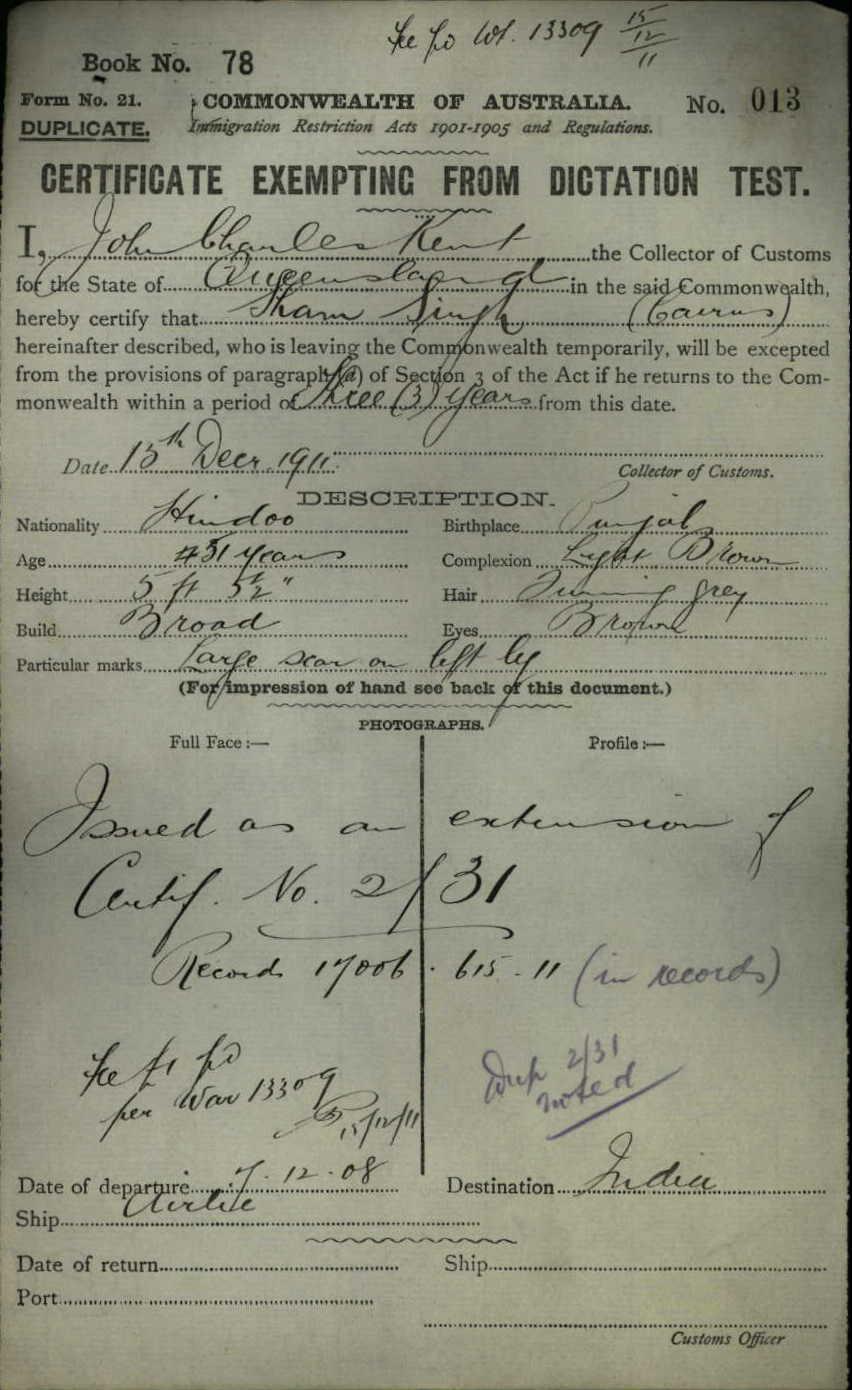 Fee pd Wt. 13309 15/12/11
Book No. 78
Form No. 21.
COMMONWEALTH OF AUSTRALIA.
No. 013
DUPLICATE.
Immigration Restriction Acts 1901-1905 and Regulations.
CERTIFICATE EXEMPTING FROM DICTATION TEST.
I, John Charles Kent the Collector of Customs
for the State of Queensland in the said Commonwealth,
hereby certify that Sham Singh (Cairns)
hereinafter described, who is leaving the Commonwealth temporarily, will be excepted
from the provisions of paragraph (a) of Section 3 of the Act if he returns to the Com-
monwealth within a period of three (3) years from this date.
Date 15th Decr. 1911.
Collector of Customs.
DESCRIPTION.
Nationality Hindoo Birthplace Punjab
Age years Complexion Light Brown
Height 5 ft 5½" Hair Turning grey
Build Broad Eyes Brown
Particular marks Large scar on left leg
(For impression of hand see back of this document.)
PHOTOGRAPHS.
Full Face :— Profile :—
Issued as an extension of
Certif. No. 2/31
Record 17006 . 615 - 11 (in records)
Fee £1 pd
per War 13309
15/12/11
Dup 2/31
noted
Date of departure 7.12.08 Destination India
Ship Airlie
Date of return Ship
Port
Customs Officer